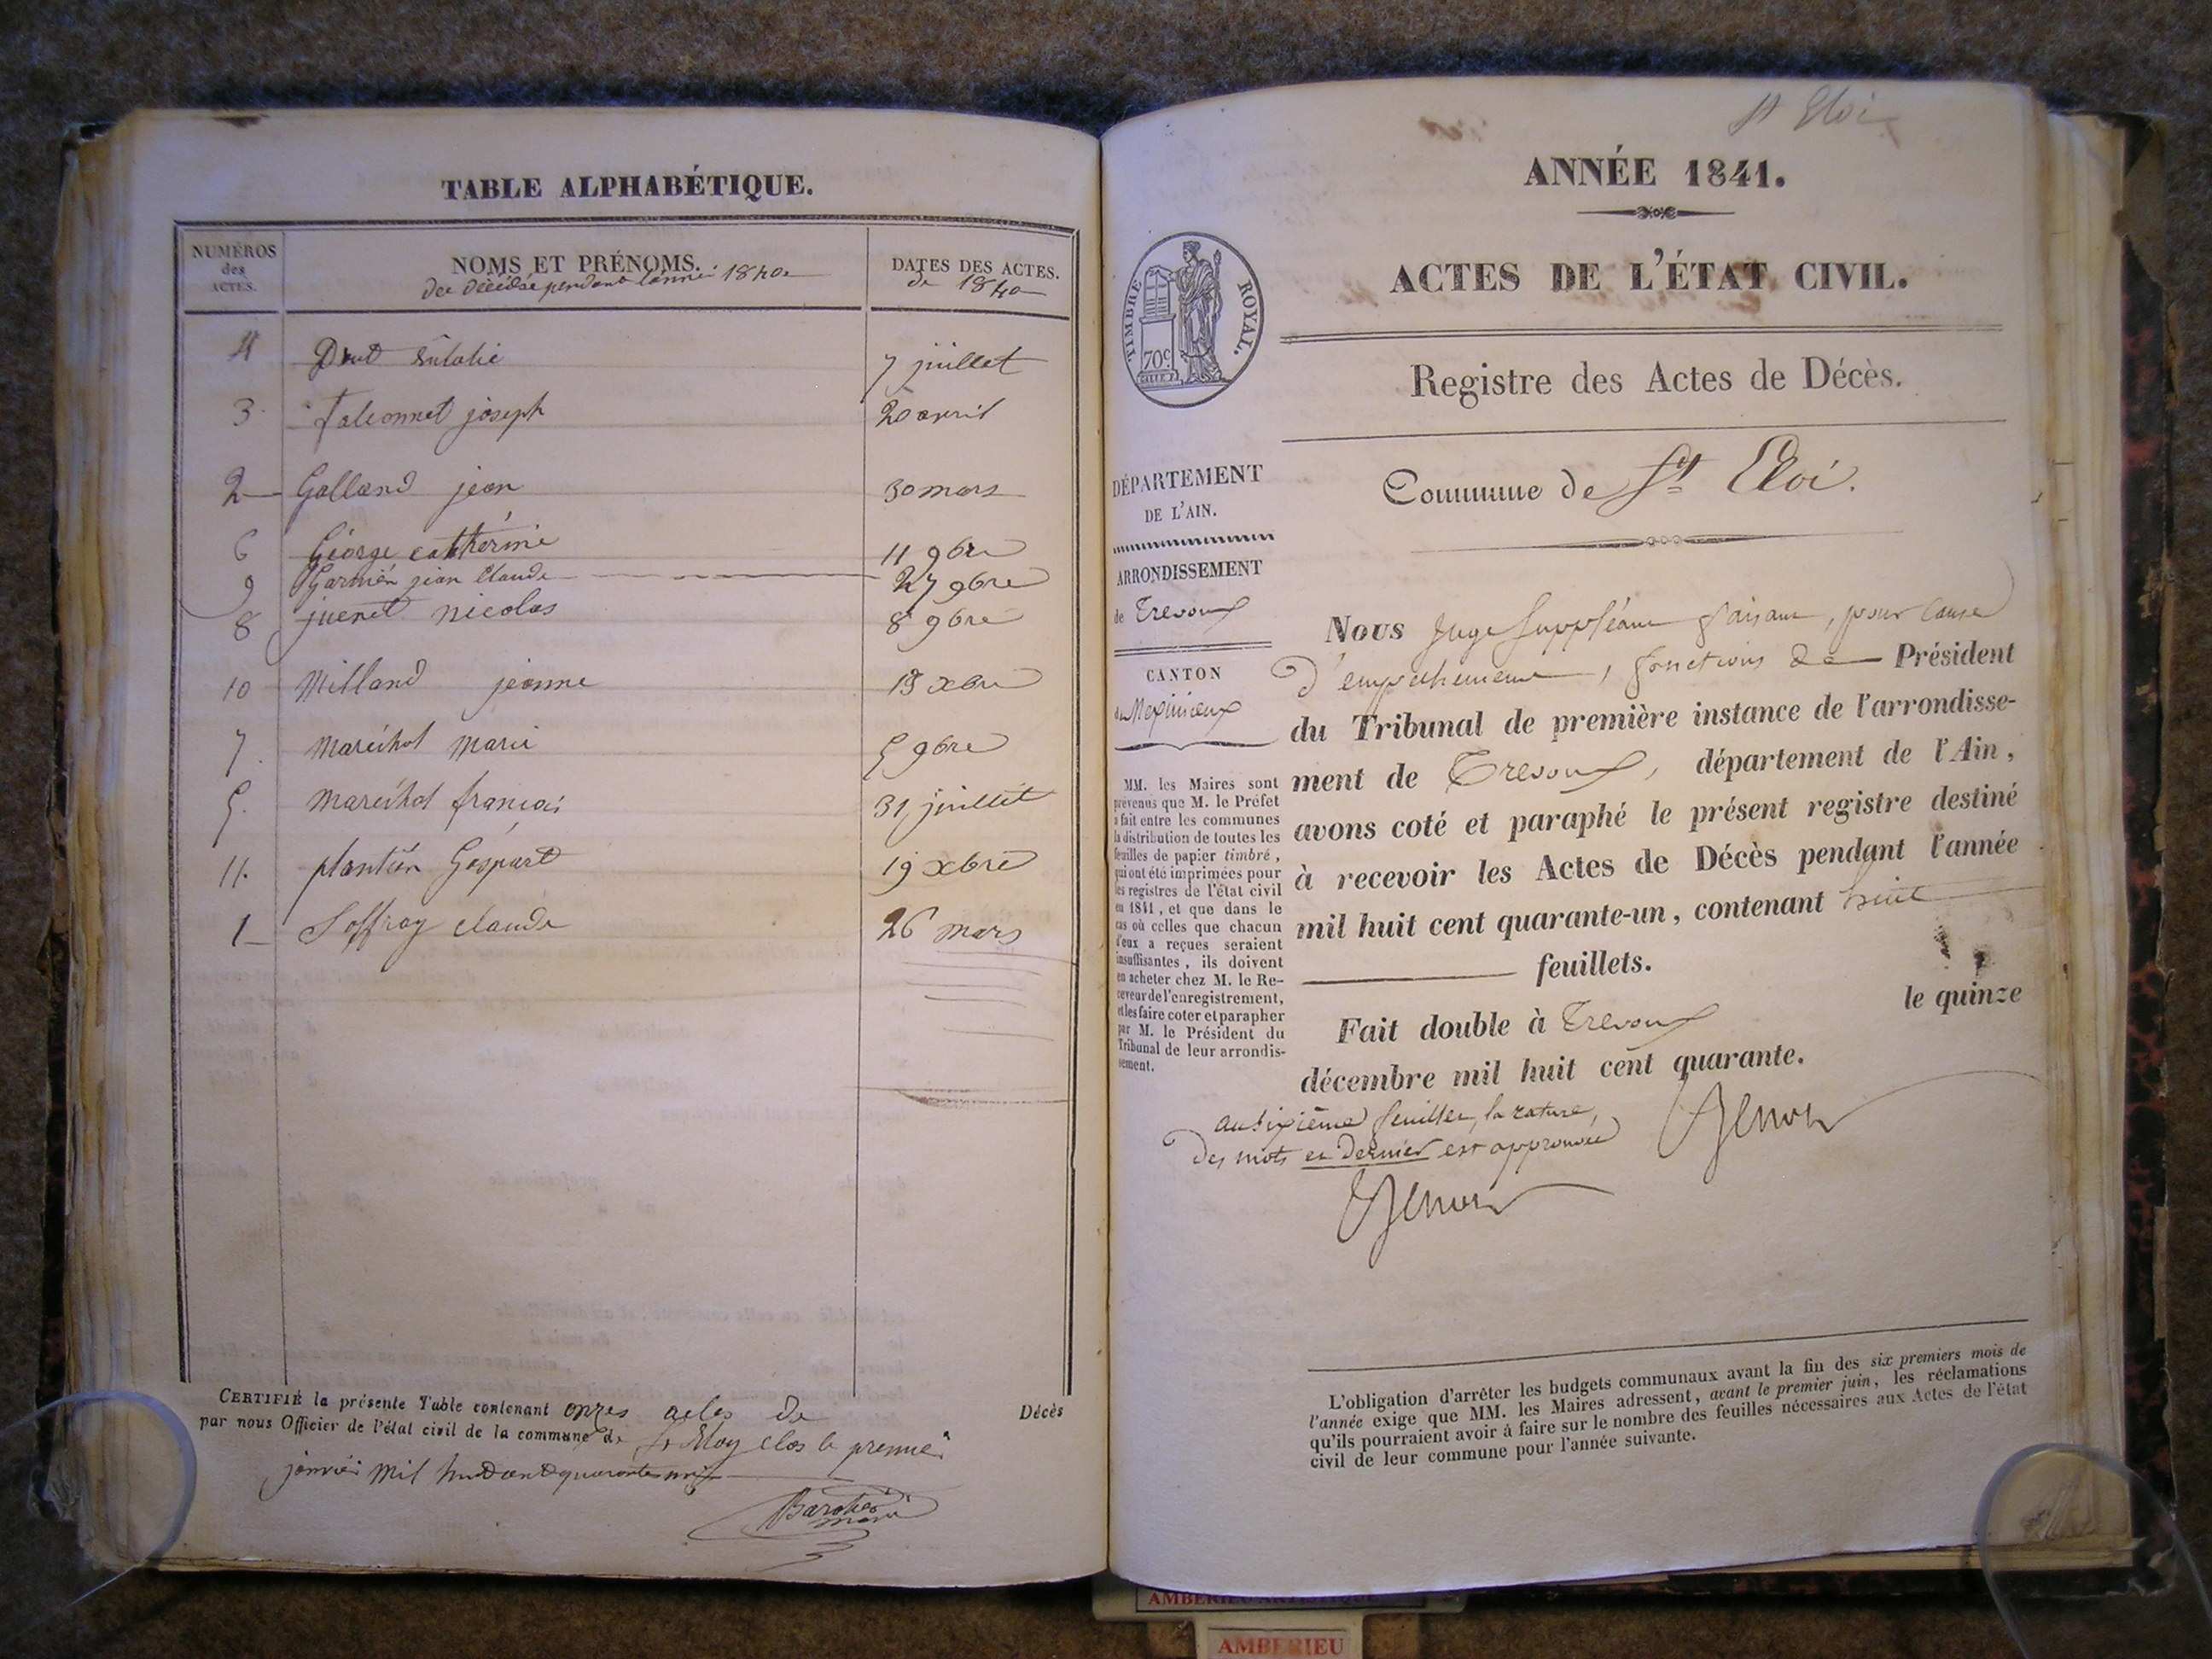 TABLE ALPHABÉTIQUE.
NUMÉROS
des
ACTES.
NOMS ET PRÉNOMS.
des décédés pendant l'année 1840
DATES DES ACTES.
de 1840
4 Drut Eulalie 7 juillet
3 falconnet joseph 20 avril
2 Galland jean 30 mars
6 George catherine 11 9bre
9 Garnier jean Claude 27 9bre
8 juenet nicolas 8 9bre
10 Milland jeanne 15 xbre
7. Maréchal Marie 5 9bre
5. Maréchal françois 31 juillet
11. plantier Gaspart 19 xbre
1 Soffray claude 26 mars
CERTIFIÉ la présente Table contenant onzes actes de Décès
par nous Officier de l'état civil de la commune de St Eloy clos le premier
janvier mil huit cent quarante un
maire
St Eloi
ANNÉE 1841.
ACTES DE L'ÉTAT CIVIL.
TIMBRE ROYAL.
70 c
Registre des Actes de Décès.
Commune de St Eloi.
DÉPARTEMENT
DE L'AIN.
ARRONDISSEMENT
de Trevoux
CANTON
de Meximieux
MM. les Maires sont
prévenus que M. le Préfet
a fait entre les communes
la distribution de toutes les
feuilles de papier timbré,
qui ont été imprimées pour
les registres de l'état civil
en 1841, et que dans le
cas où celles que chacun
d'eux a reçues seraient
insuffisantes, ils doivent
en acheter chez M. le Re-
ceveur de l'enregistrement,
et les faire coter et parapher
par M. le Président du
Tribunal de leur arrondis-
sement.
Nous Juge Suppléant faisant, pour cause
d'empêchement, fonctions de Président
du Tribunal de première instance de l'arrondisse-
ment de Trevoux, département de l'Ain,
avons coté et paraphé le présent registre destiné
à recevoir les Actes de Décès pendant l'année
mil huit cent quarante-un, contenant huit
feuillets.
Fait double à Trevoux le quinze
décembre mil huit cent quarante.
au sixième feuillet, la rature,
des mots et dernier est approuvée
L'obligation d'arrêter les budgets communaux avant la fin des six premiers mois de
l'année exige que MM. les Maires adressent, avant le premier juin, les réclamations
qu'ils pourraient avoir à faire sur le nombre des feuilles nécessaires aux Actes de l'état
civil de leur commune pour l'année suivante.
AMBERIEU ARTISTIQUE
AMBERIEU